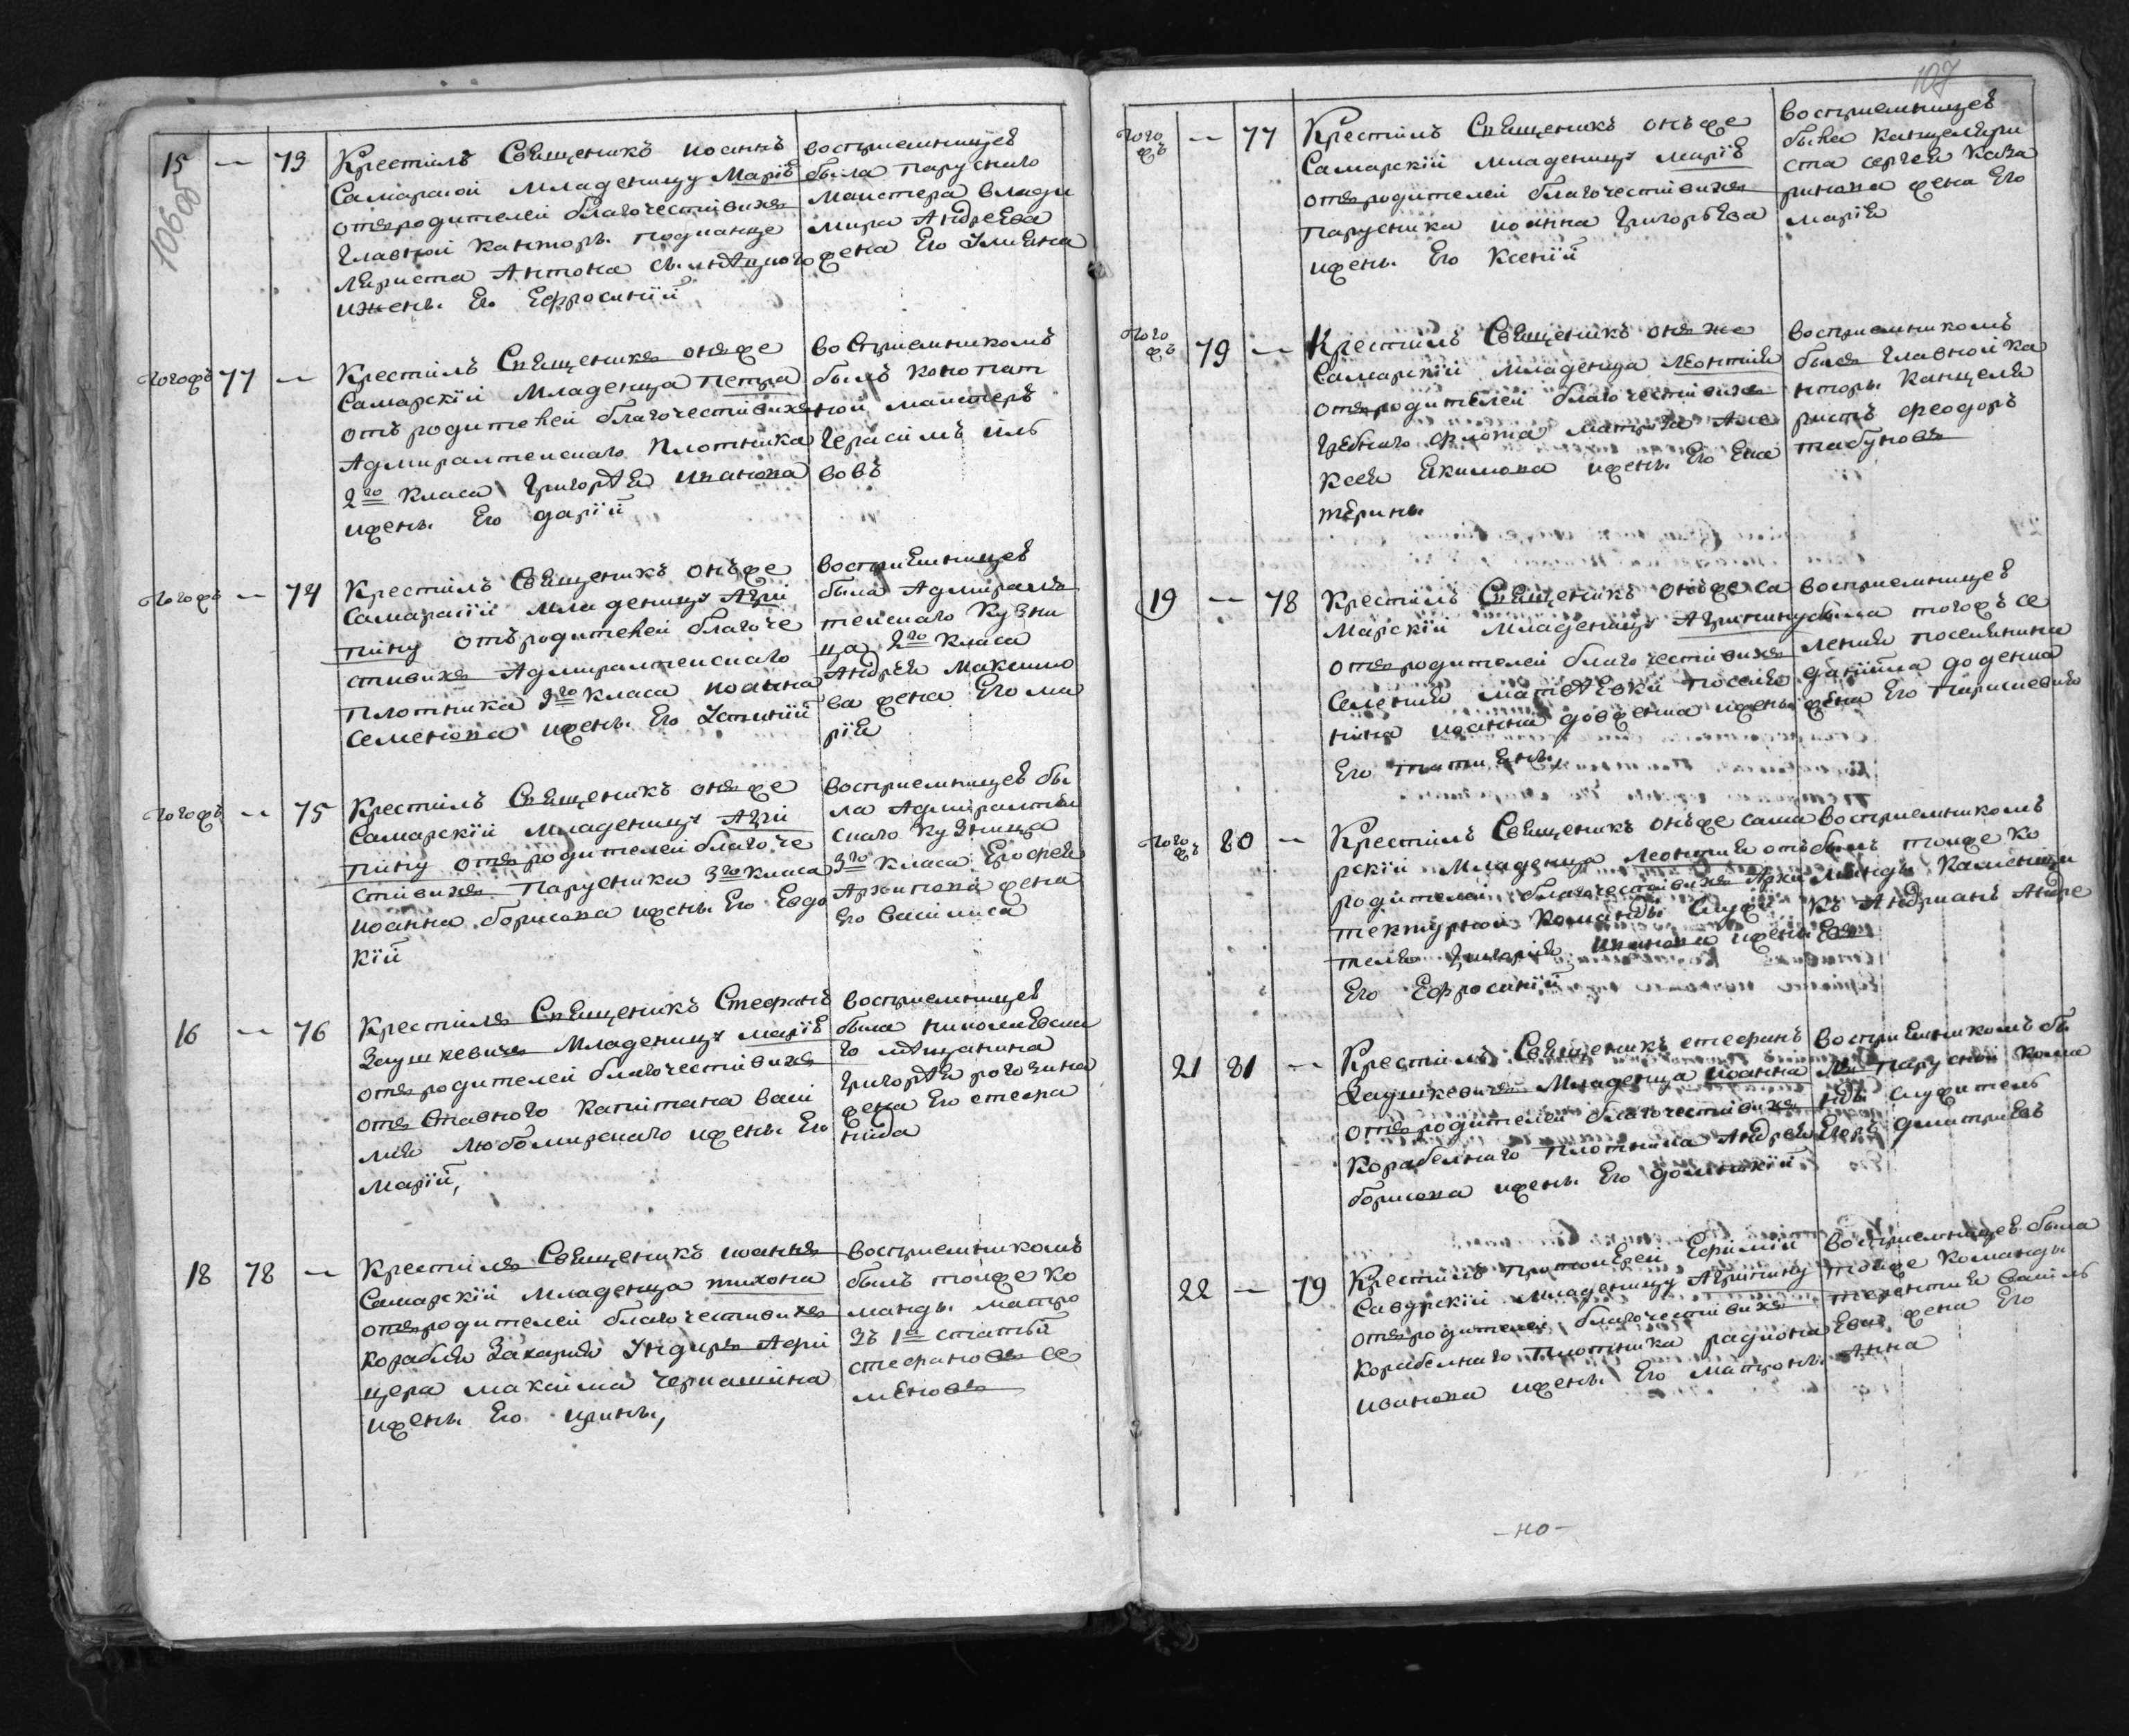 106об
15 — 73 Крестилъ Священникъ Иоаннъ
Самарской младеницу Марїю
отъ родителей благочестивихъ
главной канторы подканце
ляриста Антона
и жены его Ефросинїи
восприемницею
была парусного
маистера влади
мира Андреева
жена его Улияна
тогожъ 77 — Крестилъ Священникъ онъже
Самарскїй младенца Петра
отъ родителей благочестивихъ
Адмиралтейского плотника
2го класа Григорѣя Иванова
и жены его дарїи
восприемникомъ
былъ конопат
ной маистеръ
Герасимъ
вовъ
тогожъ — 74 Крестилъ Священникъ онъже
Самарскїй младеницу Агри
пину отъ родителей благоче
стивихъ Адмиралтейского
плотника 3го класа Иоанна
Семенова и жены его Устинїи
восприемницею
была Адмирал
тейского кузни
ца 2го класа
Андрея Максимо
ва жена его ма
рїя
тогожъ — 75 Крестилъ Священникъ онъже
Самарскїй младеницу Агри
пину отъ родителей благоче
стивихъ парусника 3го класа
Иоанна борисова и жены его Евдо
кїи
восприемницею бы
ла Адмиралтей
ского кузница
3го класа Ерофея
Архипова жена
его Василиса
16 — 76 Крестилъ Священникъ Стефанъ
Заушкевичъ младеницу марїю
отъ родителей благочестивихъ
отъ ставного капитана Васи
лия Любомирского и жены его
Марїи,
восприемницею
была николаевска
го мѣщанина
Григорѣя рогозина
жена его степа
нида
18 78 — Крестилъ Священникъ иоаннъ
Самарскїй младенца тихона
отъ родителей благочестивихъ
корабля Захария Ундеръ Афи
цера максима черкашина
и жены его ирины,
восприемникомъ
былъ тоижe ко
манды матро
зъ 1й статьи
стефановъ се
меновъ
107
тогожъ — 77 Крестилъ Священникъ онъже
Самарскїй младеницу марїю
отъ родителей благочестивихъ
парусника иоанна Григорьева
и жены его Ксенїи
восприемницею
была канцеляри
ста сергея каза
ринова жена его
марїя
тогожъ 79 — Крестилъ Священникъ онъ же
Самарскїй младенца Леонтия
отъ родителей благочестивихъ
гребного флота матроза Але
ксея Екимова и жены его Ека
терины
восприемникомъ
былъ главной ка
нторы канцеля
ристъ феодоръ
табуновъ
19 — 78 Крестилъ Священникъ онъже са
марскїй младеницу Агрипину
отъ родителей благочестивихъ
селения матвѣевки поселя
нина иоанна довженка и жены
его татияны,
восприемницею
была тогожъ се
ления поселянина
данїила доценка
жена его
тогожъ 80 — Крестилъ Священникъ онъже сама
рскїй младенца Леонтия отъ
родителей благочестивихъ Архи
тектурной команды служи
теля Григория Иванова и жены
его Ефросинїи
восприемникомъ
былъ тоиже ко
манды каменщи
къ Андрианъ Андре
евъ
21 81 — Крестилъ Священникъ стефанъ
Заушкевичъ младенца иоанна
отъ родителей благочестивихъ
корабелнаго плотника Андрея
борисова и жены его домникїи
восприемникомъ бы
лъ парусной кома
нды служитель
Егоръ дмитриевъ
22 — 79 Крестилъ протоиерей Ефимїй
Савурскїй младеницу Агрипину
отъ родителей благочестивихъ
корабелнаго плотника радиона
иванова и жены его матроны
восприемницею была
тоиже команды
терентия Василь
ева жена его
Анна